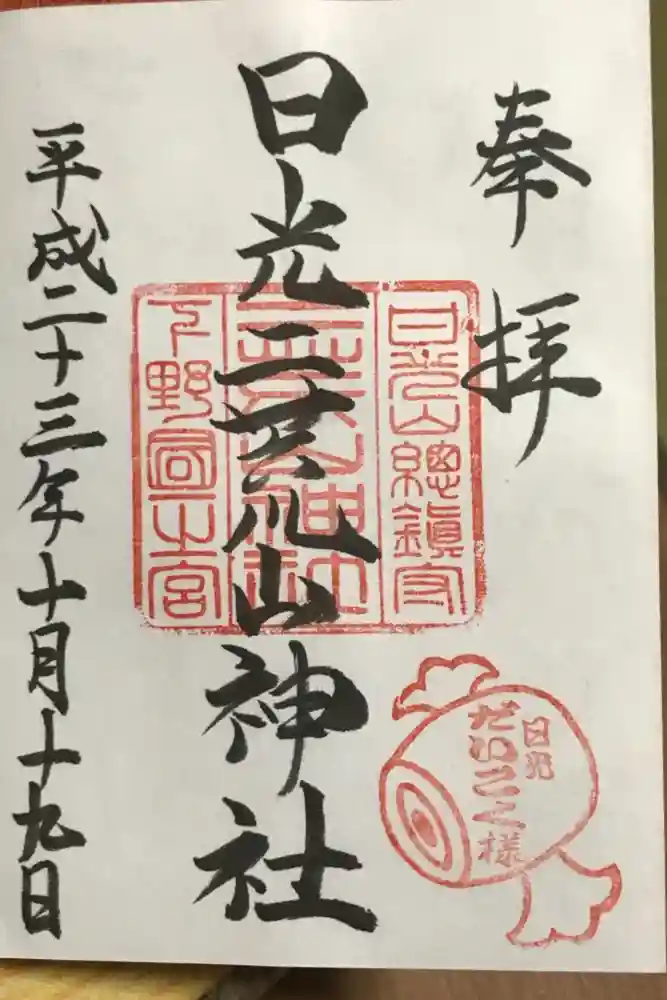 奉拝
日光山總鎮守
日光二荒山神社
二荒山神社
下野國一之宮
平成二十三年十月十九日
日光
だいこく様